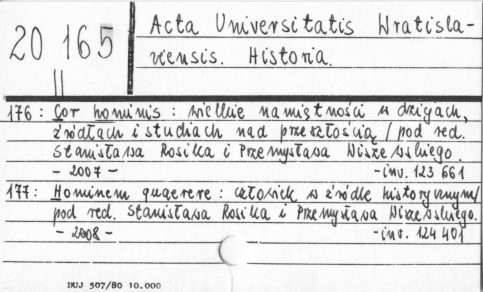 20 165
Acta Universitatis Wratisla-
viensis. Historia.
176: Cor hominis: wielkie namiętności w dziejach,
źródłach i studiach nad przeszłością / pod red.
Stanisława Rosika i Przemysława Wiszewskiego.
- 2007 - -inv. 123 661
177: Hominem quaerere: człowiek w źródle historycznym /
pod red. Stanisława Rosika i Przemysława Wiszewskiego.
- 2008 - -inv. 124 401
DUJ 507/80 10.000